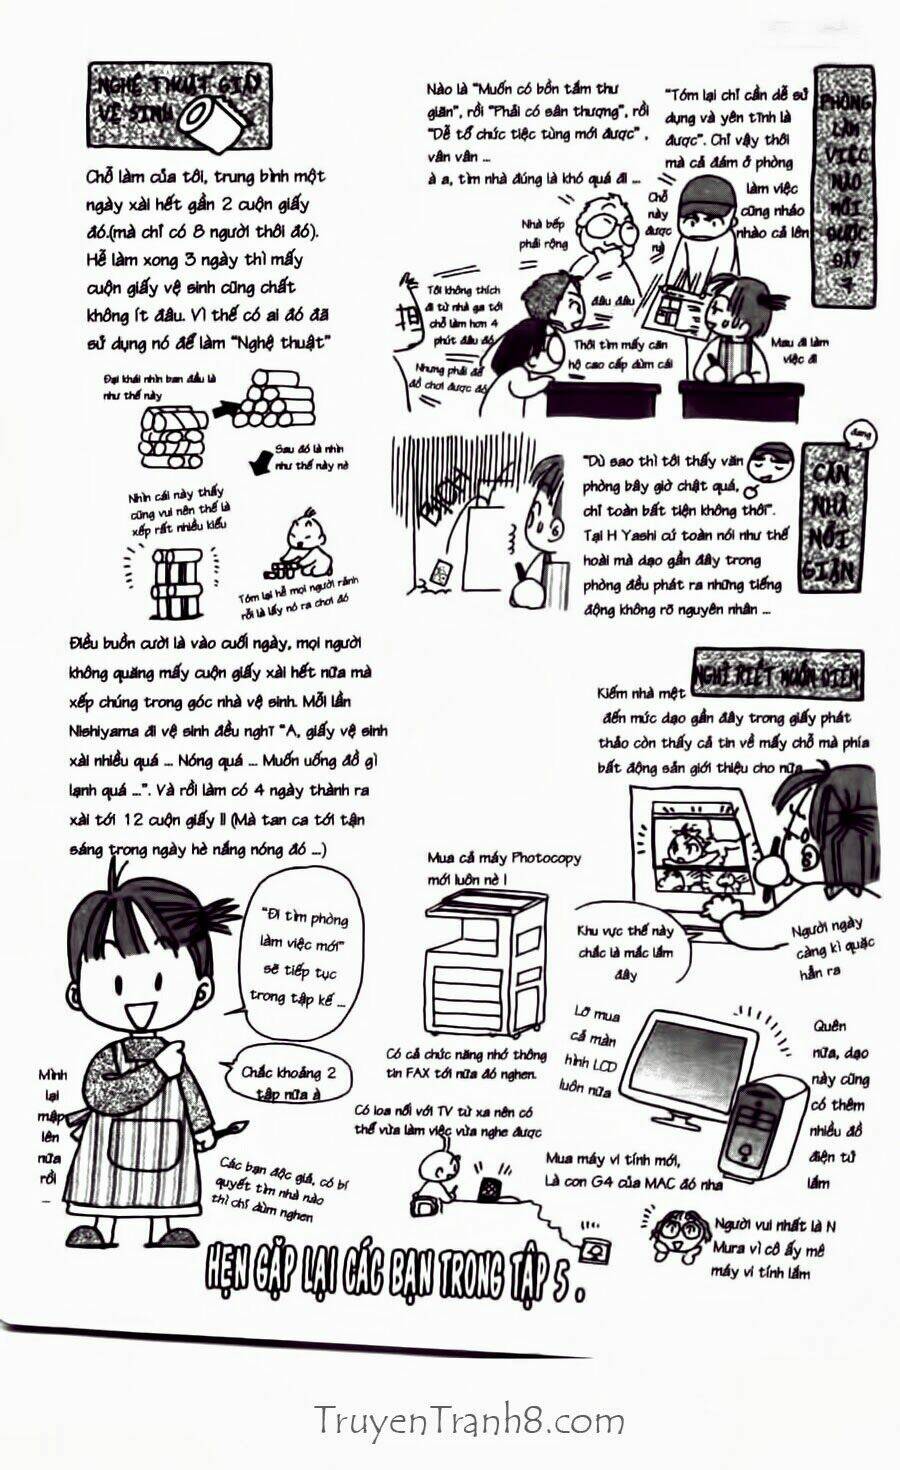 NGHỆ THUẬT GIẤY
VỆ SINH
Chỗ làm của tôi, trung bình một
ngày xài hết gần 2 cuộn giấy
đó.(mà chỉ có 8 người thôi đó).
Hễ làm xong 3 ngày thì mấy
cuộn giấy vệ sinh cũng chất
không ít đâu. Vì thế có ai đó đã
sử dụng nó để làm "Nghệ thuật"
Đại khái nhìn ban đầu là
như thế này
Sau đó là nhìn
như thế này nè
Nhìn cái này thấy
cũng vui nên thế là
xếp rất nhiều kiểu
Tóm lại hễ mọi người rảnh
rỗi là lấy nó ra chơi đó
Điều buồn cười là vào cuối ngày, mọi người
không quăng mấy cuộn giấy xài hết nữa mà
xếp chúng trong góc nhà vệ sinh. Mỗi lần
Nishiyama đi vệ sinh đều nghĩ "A, giấy vệ sinh
xài nhiều quá ... Nóng quá ... Muốn uống đồ gì
lạnh quá ...". Và rồi làm có 4 ngày thành ra
xài tới 12 cuộn giấy !! (Mà tan ca tới tận
sáng trong ngày hè nắng nóng đó ...)
"Đi tìm phòng
làm việc mới"
sẽ tiếp tục
trong tập kế ...
Chắc khoảng 2
tập nữa à
Mình
lại
mập
lên
nữa
rồi
...
Các bạn độc giả, có bí
quyết tìm nhà nào
thì chỉ dùm nghen
PHÒNG
LÀM
VIỆC
NÀO
MỚI
ĐƯỢC
ĐÂY
?
Nào là "Muốn có bồn tắm thư
giãn", rồi "Phải có sân thượng", rồi
"Dễ tổ chức tiệc tùng mới được" ,
vân vân ...
à a, tìm nhà đúng là khó quá đi ...
"Tóm lại chỉ cần dễ sử
dụng và yên tĩnh là
được". Chỉ vậy thôi
mà cả đám ở phòng
làm việc
cũng nháo
nhào cả lên
Nhà bếp
phải rộng
Chỗ
này
được
nè
Tôi không thích
đi từ nhà ga tới
chỗ làm hơn 4
phút đâu đó
Nhưng phải để
đồ chơi được đó
đâu đâu
Thôi tìm mấy căn
hộ cao cấp dùm cái
Mau đi làm
việc đi
đang
CĂN
NHÀ
NỔI
GIẬN
"Dù sao thì tôi thấy văn
phòng bây giờ chật quá,
chỉ toàn bất tiện không thôi".
Tại H Yashi cứ toàn nói như thế
hoài mà dạo gần đây trong
phòng đều phát ra những tiếng
động không rõ nguyên nhân ...
NGHĨ RIẾT MUỐN ĐIÊN
Kiếm nhà mệt
đến mức dạo gần đây trong giấy phát
thảo còn thấy cả tin về mấy chỗ mà phía
bất động sản giới thiệu cho nữa
Khu vực thế này
chắc là mắc lắm
đây
Người ngày
càng kì quặc
hẳn ra
Mua cả máy Photocopy
mới luôn nè !
Có cả chức năng nhớ thông
tin FAX tới nữa đó nghen.
Lỡ mua
cả màn
hình LCD
luôn nữa
Quên
nữa, dạo
này cũng
có thêm
nhiều đồ
điện tử
lắm
Có loa nối với TV từ xa nên có
thể vừa làm việc vừa nghe được
Mua máy vi tính mới,
Là con G4 của MAC đó nha
Người vui nhất là N
Mura vì cô ấy mê
máy vi tính lắm
HẸN GẶP LẠI CÁC BẠN TRONG TẬP 5 .
TruyenTranh8.com